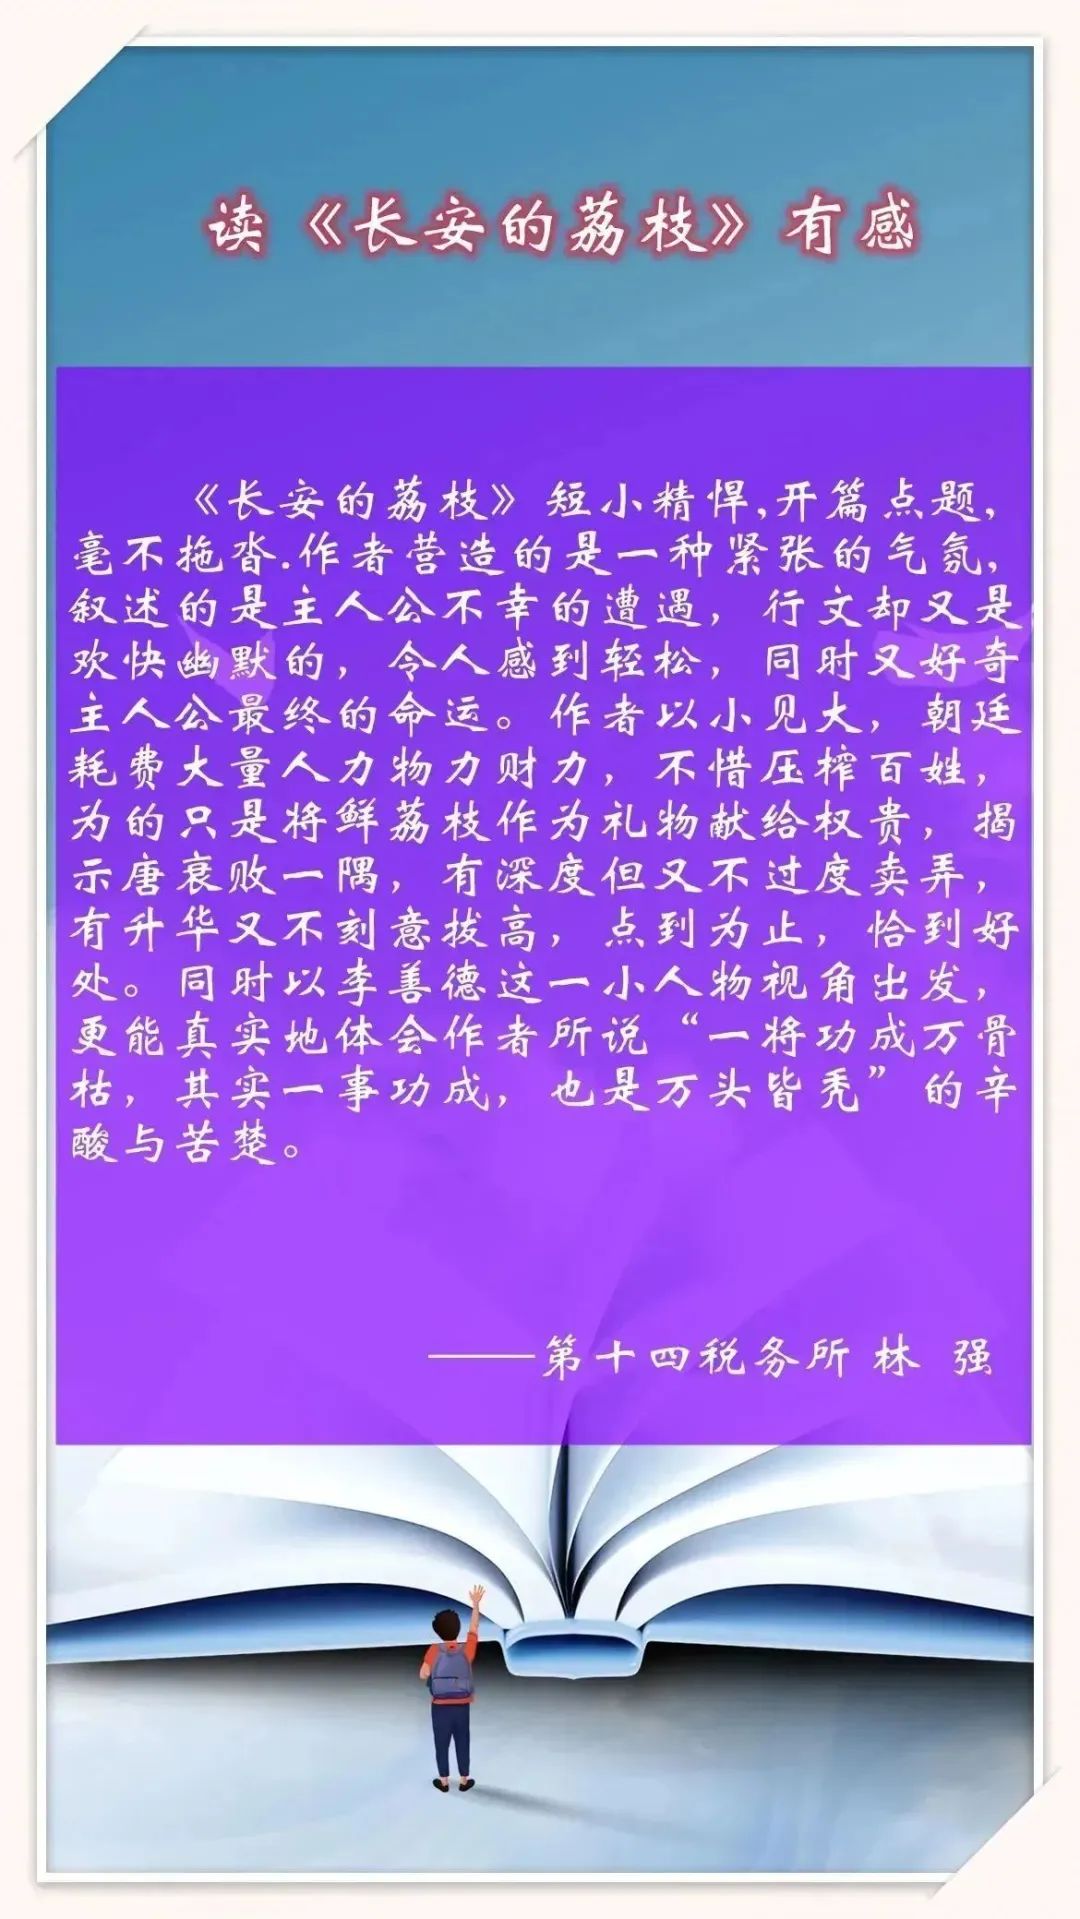 读《长安的荔枝》有感
《长安的荔枝》短小精悍,开篇点题,
毫不拖沓.作者营造的是一种紧张的气氛,
叙述的是主人公不幸的遭遇，行文却又是
欢快幽默的，令人感到轻松，同时又好奇
主人公最终的命运。作者以小见大，朝廷
耗费大量人力物力财力，不惜压榨百姓，
为的只是将鲜荔枝作为礼物献给权贵，揭
示唐衰败一隅，有深度但又不过度卖弄，
有升华又不刻意拔高，点到为止，恰到好
处。同时以李善德这一小人物视角出发，
更能真实地体会作者所说“一将功成万骨
枯，其实一事功成，也是万头皆秃”的辛
酸与苦楚。
——第十四税务所 林 强